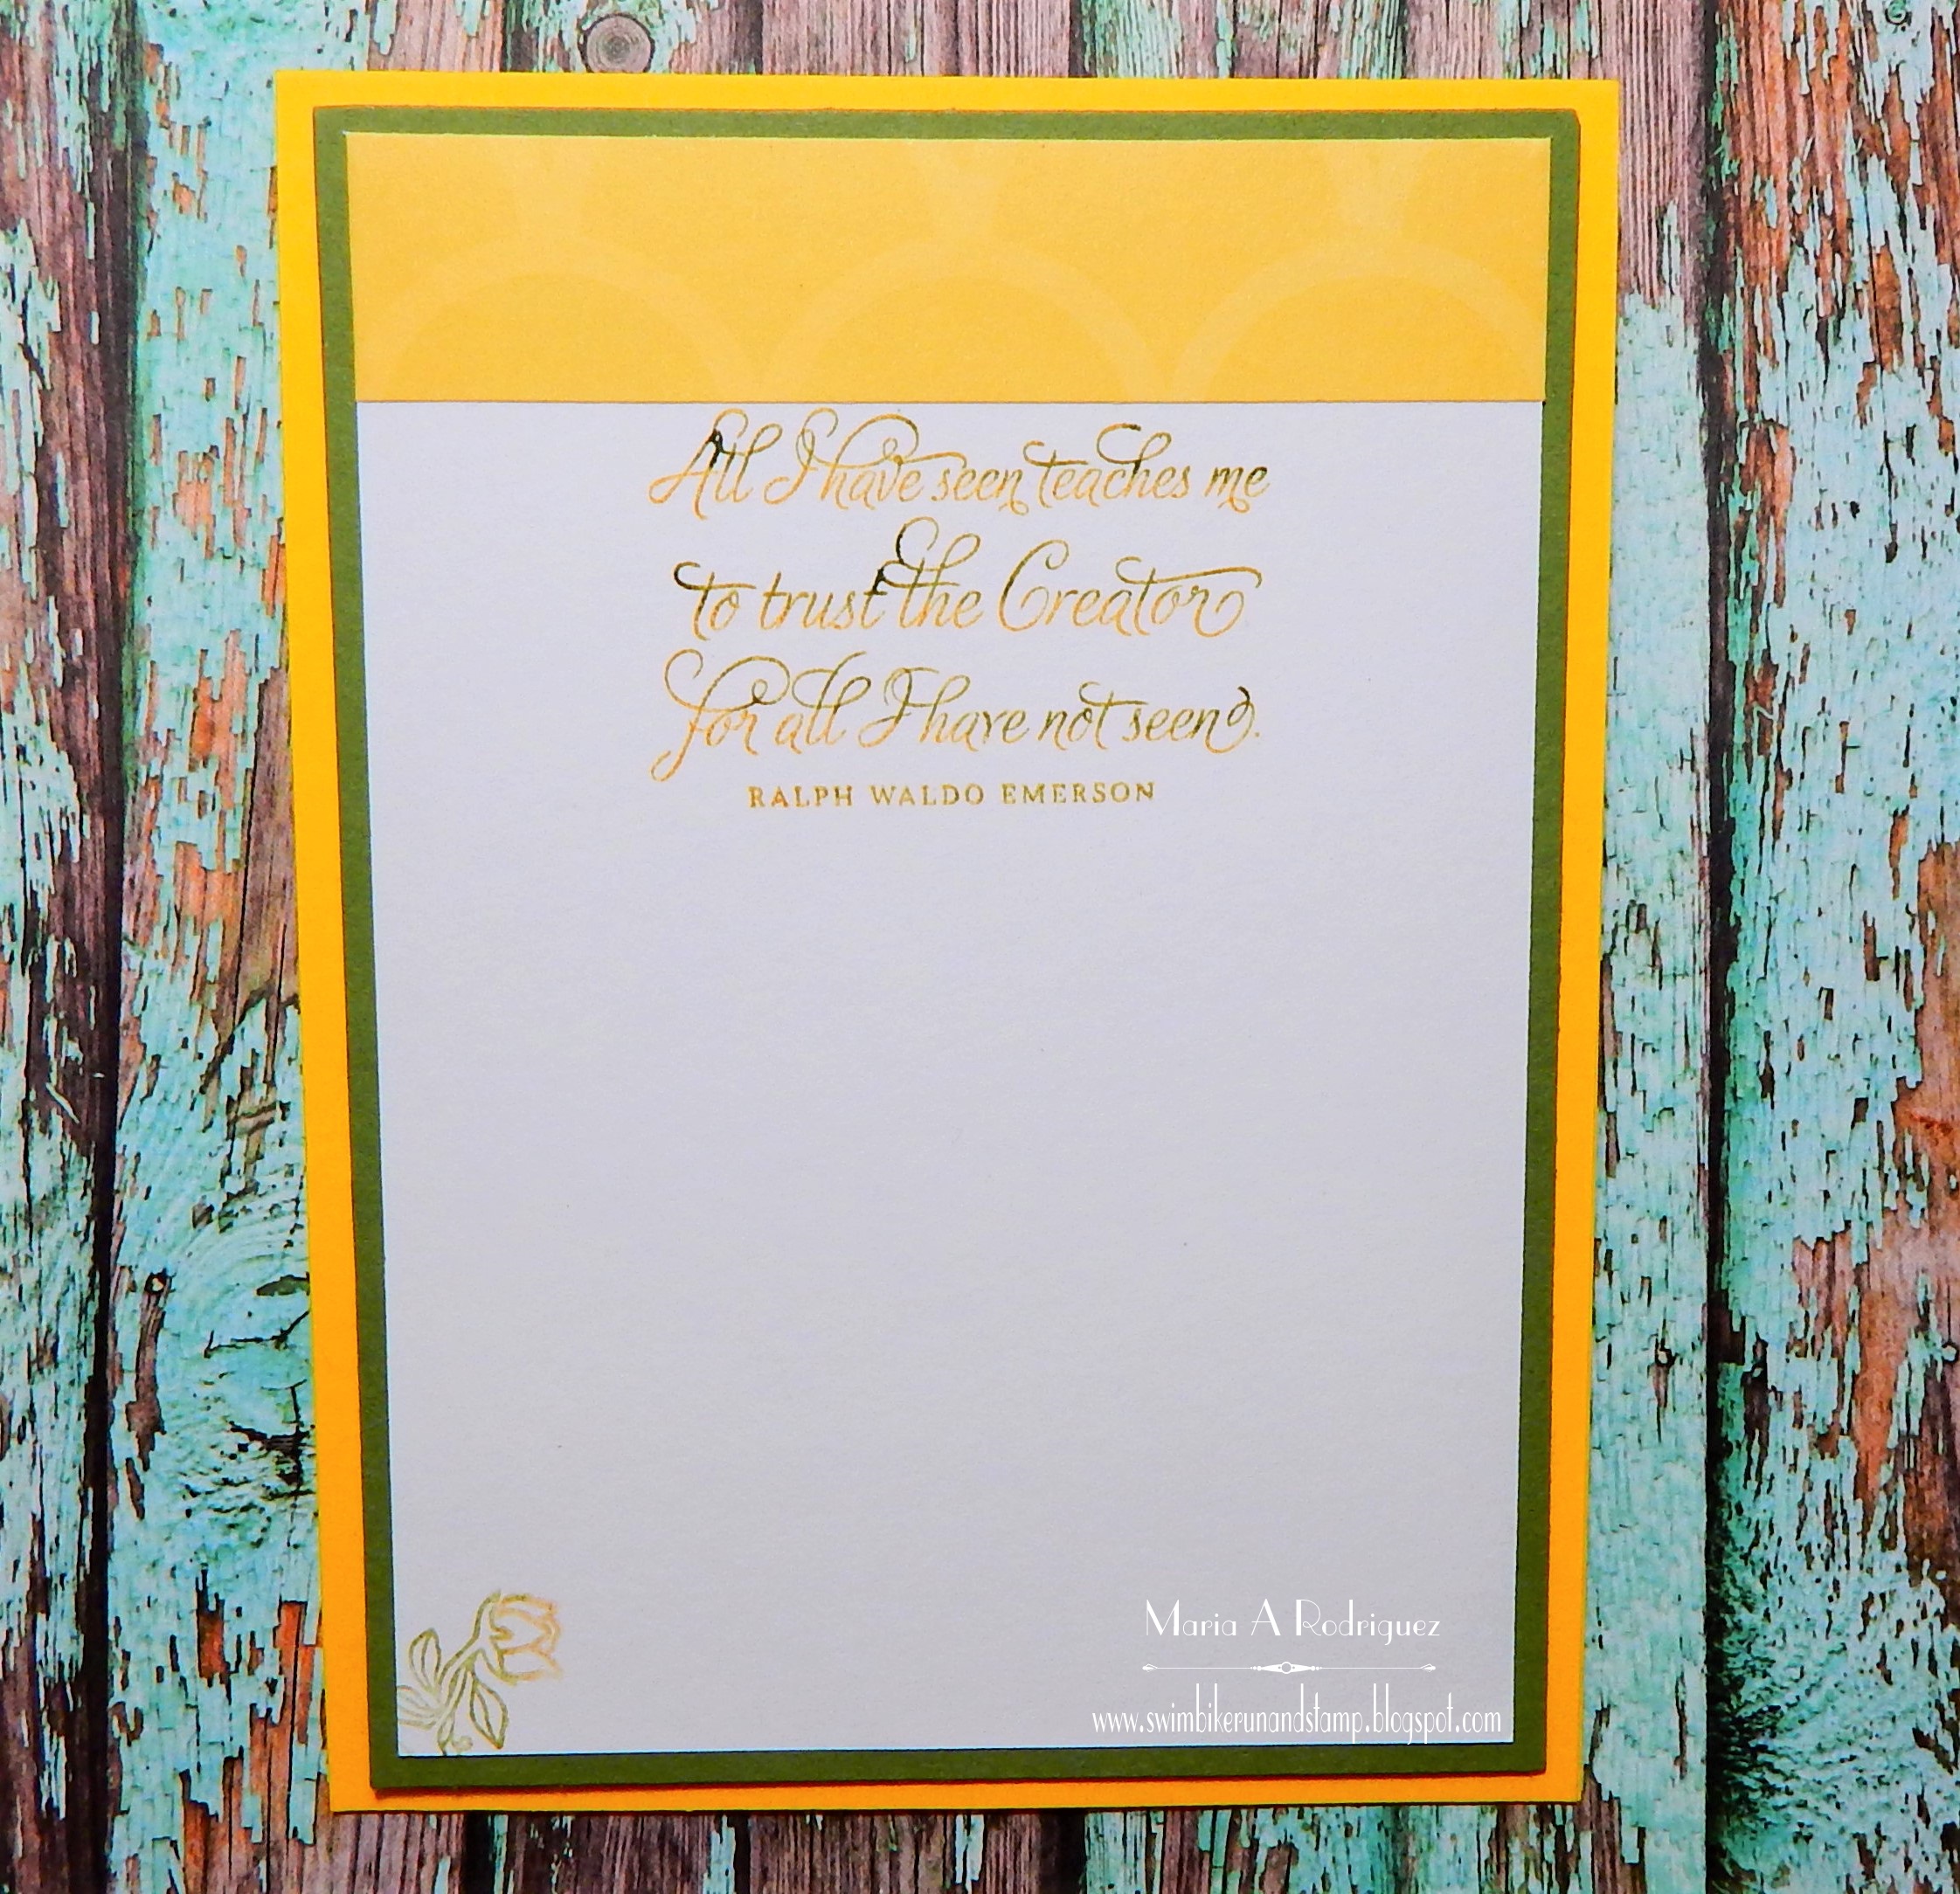 All I have seen teaches me
to trust the Creator
for all I have not seen.
RALPH WALDO EMERSON
Maria A Rodriguez
www.swimbikerunandstamp.blogspot.com